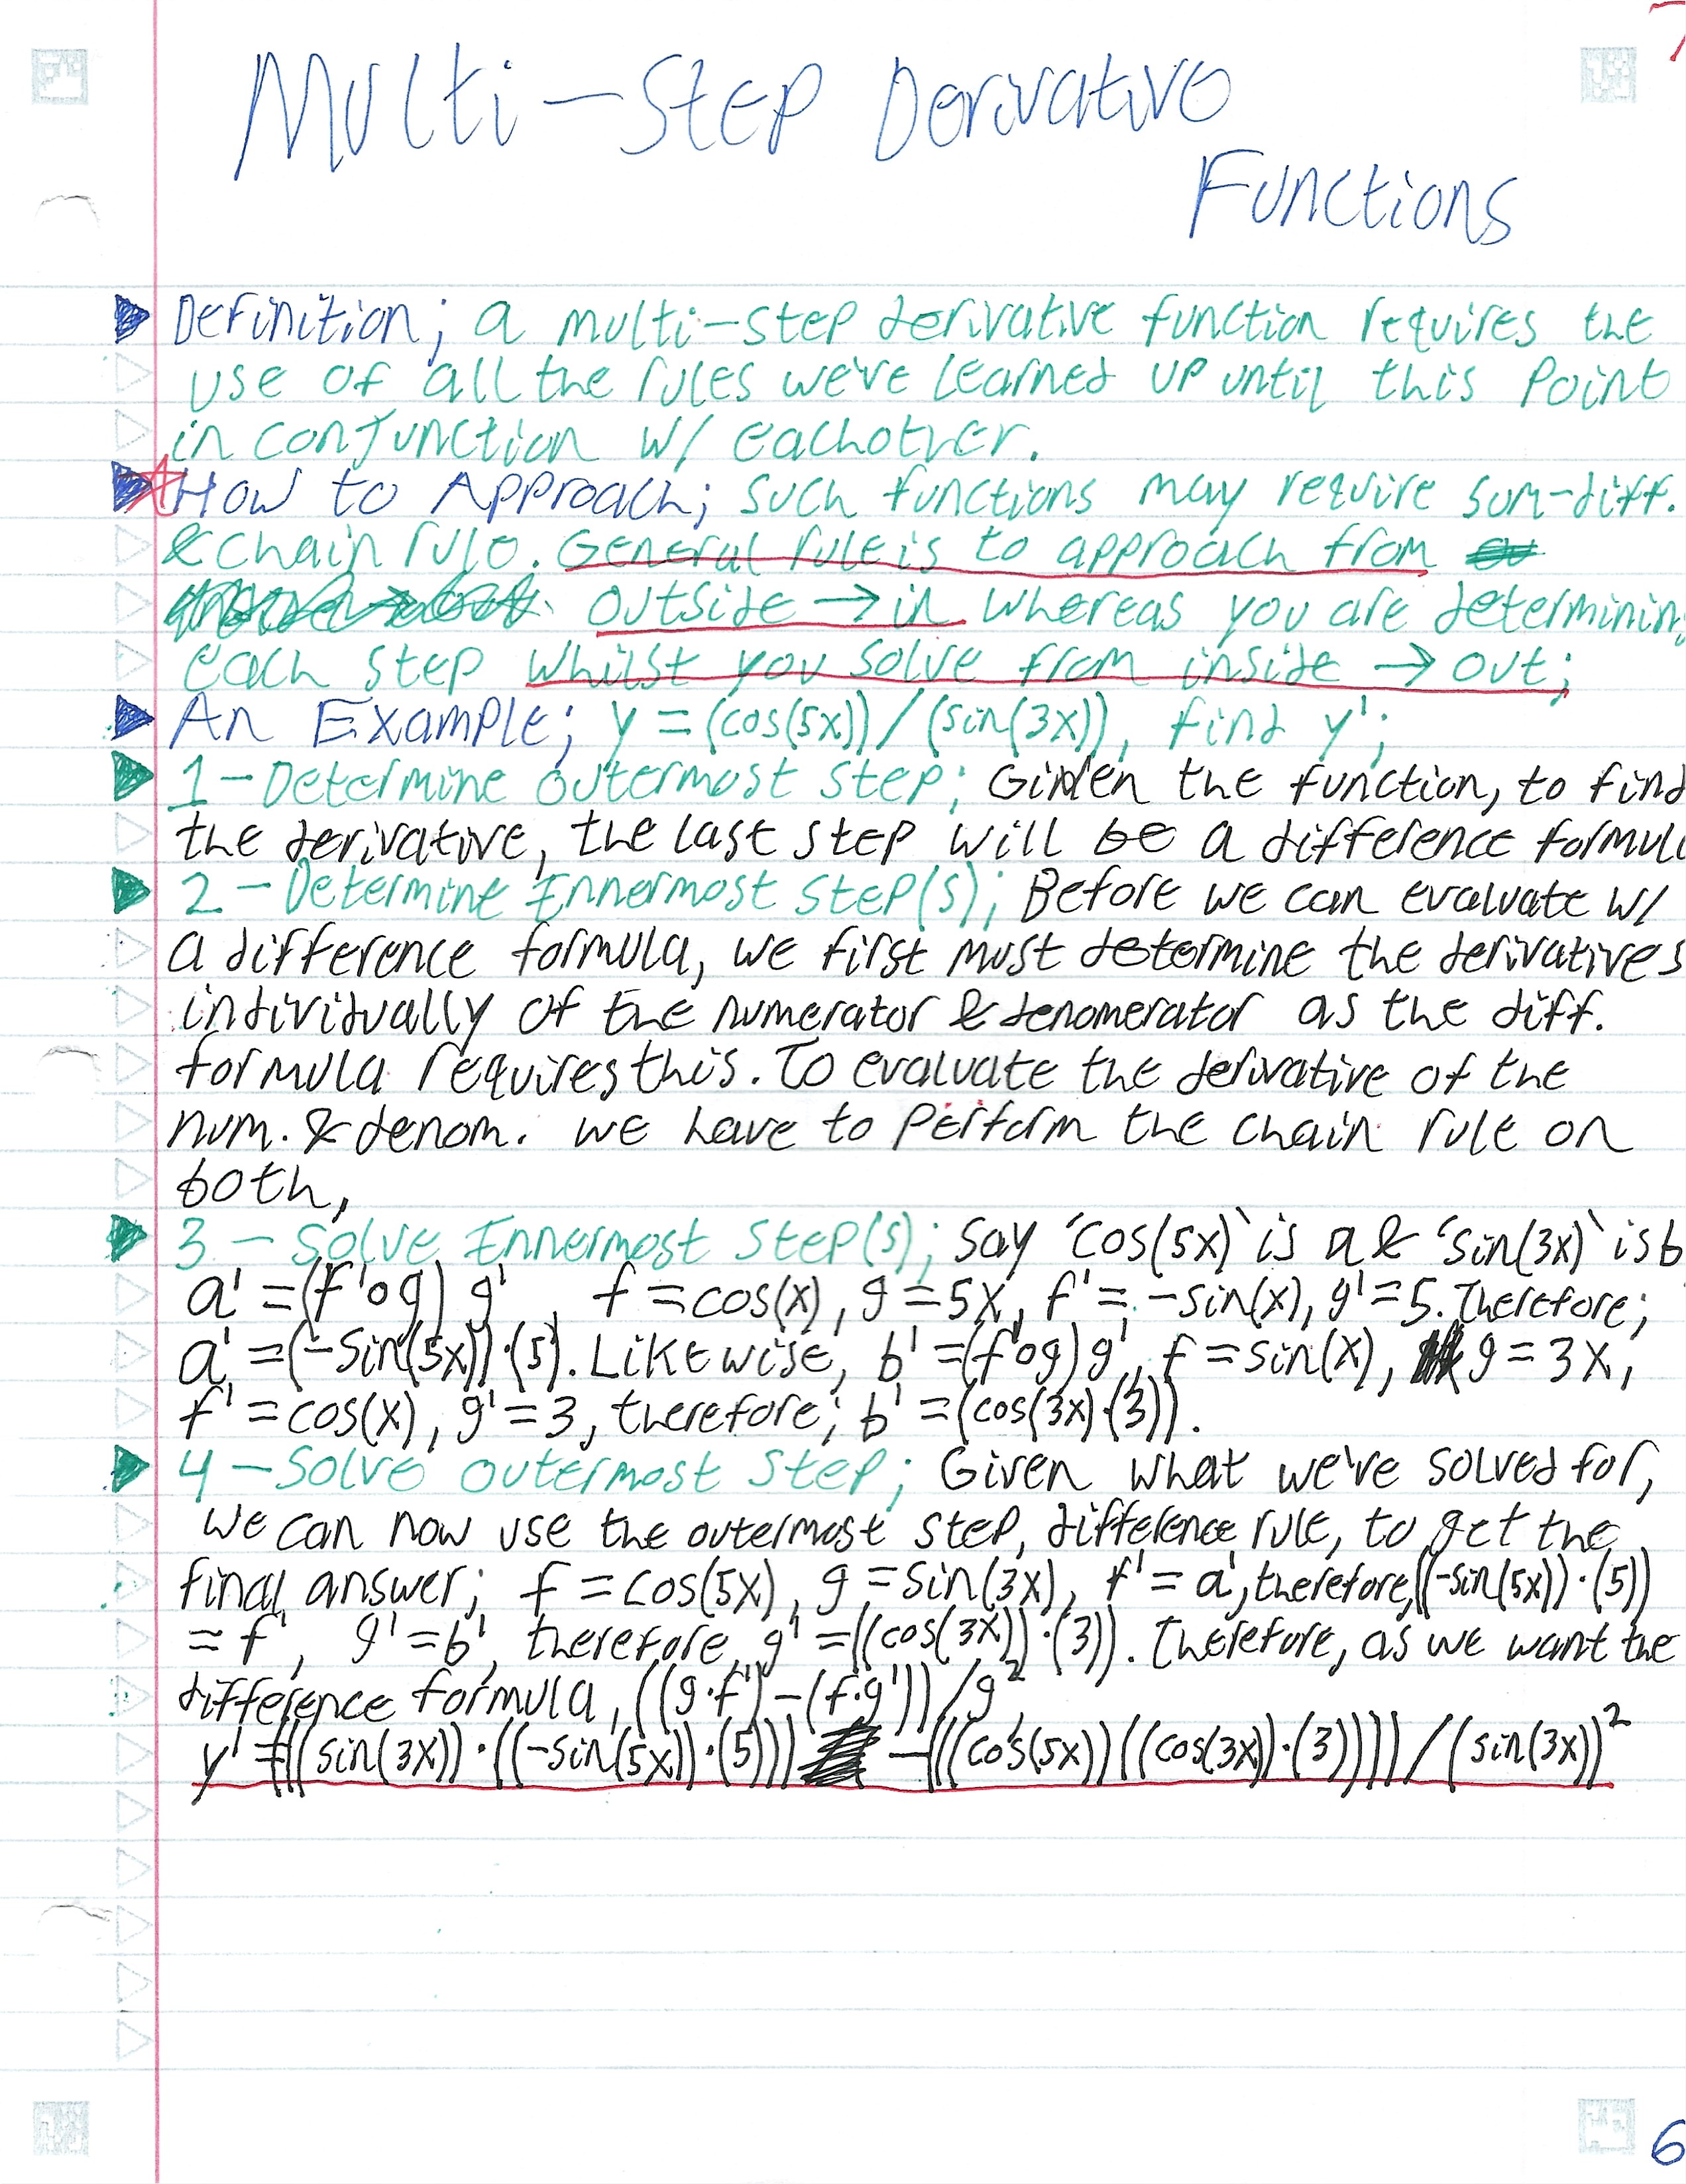 Multi-Step Derivative
Functions
Definition; a multi-step derivative function requires the
use of all the rules we've learned up until this point
in conjunction w/ eachother.
How to Approach; such functions may require sum-diff.
& chain rule. General rule is to approach from
outside → in whereas you are determining
each step whilst you solve from inside → out;
An Example; y = (cos(5x)) / (sin(3x)), find y';
1-Determine outermost step; Given the function, to find
the derivative, the last step will be a difference formul
2-Determine Innermost Step(s); Before we can evaluate w/
a difference formula, we first must determine the derivatives
individually of the numerator & denomerator as the diff.
formula requires this. To evaluate the derivative of the
num. & denom. we have to perform the chain rule on
both,
3-Solve Innermost Step(s); Say 'cos(5x)' is a & 'sin(3x)' is b
a' = (f'og) g', f = cos(x), g = 5x, f' = -sin(x), g' = 5. Therefore;
a' = (-sin(5x))·(5). Likewise, b' = (f'og)g', f = sin(x), g = 3x,
f' = cos(x), g' = 3, therefore; b' = (cos(3x)·(3)).
4-Solve outermost Step; Given what we've solved for,
we can now use the outermost step, difference rule, to get the
final answer; f = cos(5x), g = sin(3x), f' = a', therefore, ((-sin(5x))·(5))
= f', g' = b', therefore, g' = ((cos(3x))·(3)). Therefore, as we want the
difference formula, ((g·f')-(f·g'))/g²,
y' = (((sin(3x))·((-sin(5x))·(5))) - (((cos(5x))((cos(3x))·(3)))) / (sin(3x))²
6